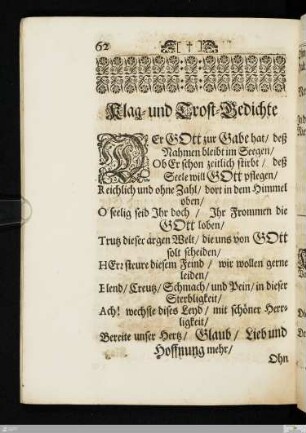 62 [ † ]
Klag- und Trost-Gedichte
WEr GOtt zur Gabe hat/ deß
Nahmen bleibt im Seegen/
Ob Er schon zeitlich stirbt/ deß
Seele will GOtt pflegen/
Reichlich und ohne Zahl/ dort in dem Himmel
oben/
O seelig seid Ihr doch/ Ihr Frommen die
GOtt loben/
Trutz dieser argen Welt/ die uns von GOtt
solt scheiden/
HErr steure diesem Feind/ wir wollen gerne
leiden/
Elend/ Creutz/ Schmach/ und Pein/ in dieser
Sterbligkeit/
Ach! wechsle dieses Leyd/ mit schöner Herr-
ligkeit/
Bereite unser Hertz/ Glaub/ Lieb und
Hoffnung mehr/
Ohn